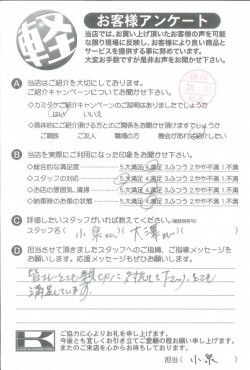 軽
お客様アンケート
当店では、お買い上げ頂いたお客様の声を可能
な限り現場に反映し、お客様により良い商品と
サービスを提供する事に努めています。
大変お手数ですが是非お声をお聞かせ下さい。
A 当店はご紹介を大切にしております。
ご紹介キャンペーンについてお聞かせ下さい。
はい いいえ
ご親族 ご友人 職場の方
B 当店を実際にご利用になった印象をお聞かせ下さい。
◇総合的な満足度 5.大満足 4.満足 3.ふつう 2.やや不満 1.不満
◇スタッフの対応 5.大満足 4.満足 3.ふつう 2.やや不満 1.不満
◇お店の雰囲気、清掃 5.大満足 4.満足 3.ふつう 2.やや不満 1.不満
◇納車時のお車の状態 5.大満足 4.満足 3.ふつう 2.やや不満 1.不満
C 評価したいスタッフがいれば教えてください。
スタッフ名( 小泉さん )( 大澤さん )
D 担当させて頂きましたスタッフへのご指摘、ご指導メッセージを
お願いします。応援メッセージもぜひお願いします。
満足しています。
K
ご協力に心よりお礼を申し上げます。
今後とも宜しくお引き立てご愛顧の程お願い申し上げます。
またのご来店を心からお待ちしております。
担当( 小泉 )